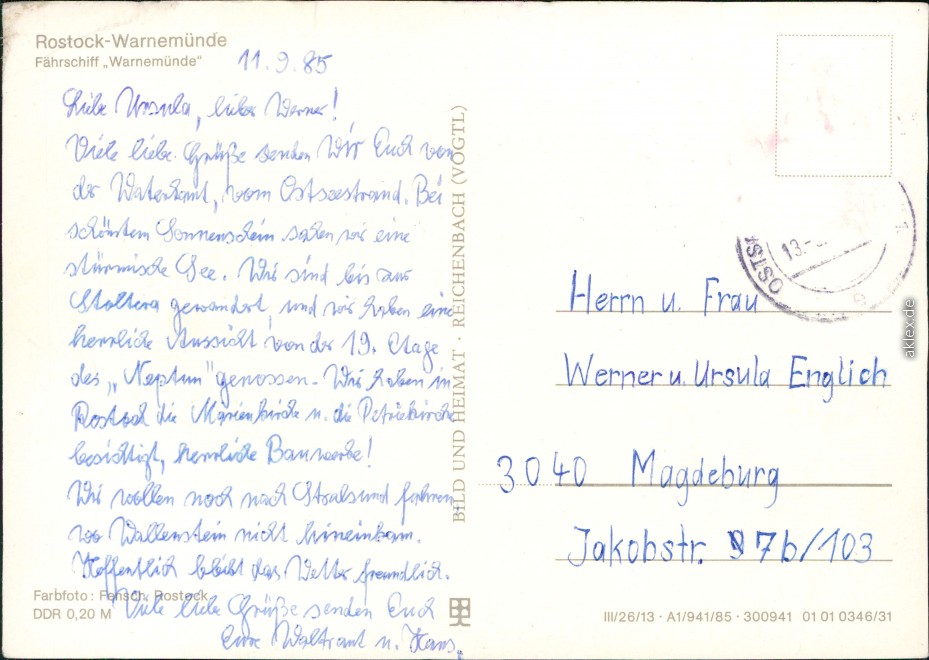 Rostock-Warnemünde
Fährschiff „Warnemünde"
11.9.85
Liebe Ursula, lieber Werner!
Viele liebe Grüße senden Wir Euch von
der Waterkant, vom Ostseestrand. Bei
schönstem Sonnenschein sahen wir eine
stürmische See. Wir sind bis zur
Stoltera gewandert, und wir haben eine
herrliche Aussicht von der 19. Etage
des „Neptun" genossen. Wir haben in
Rostock die Marienkirche u. die Petrikirche
besichtigt, herrliche Bauwerke!
Wir wollen noch nach Stralsund fahren,
wo Wallenstein nicht hineinkam.
Hoffentlich bleibt das Wetter freundlich.
Viele liebe Grüße senden Euch
Eure Waltraut u. Hans.
Farbfoto: Fensch, Rostock
DDR 0,20 M
BILD UND HEIMAT · REICHENBACH (VOGTL)
OSTS
13.
Herrn u. Frau
Werner u. Ursula Englich
3040 Magdeburg
Jakobstr. 7b/103
III/26/13 · A1/941/85 · 300941 01 01 0346/31
aklex.de